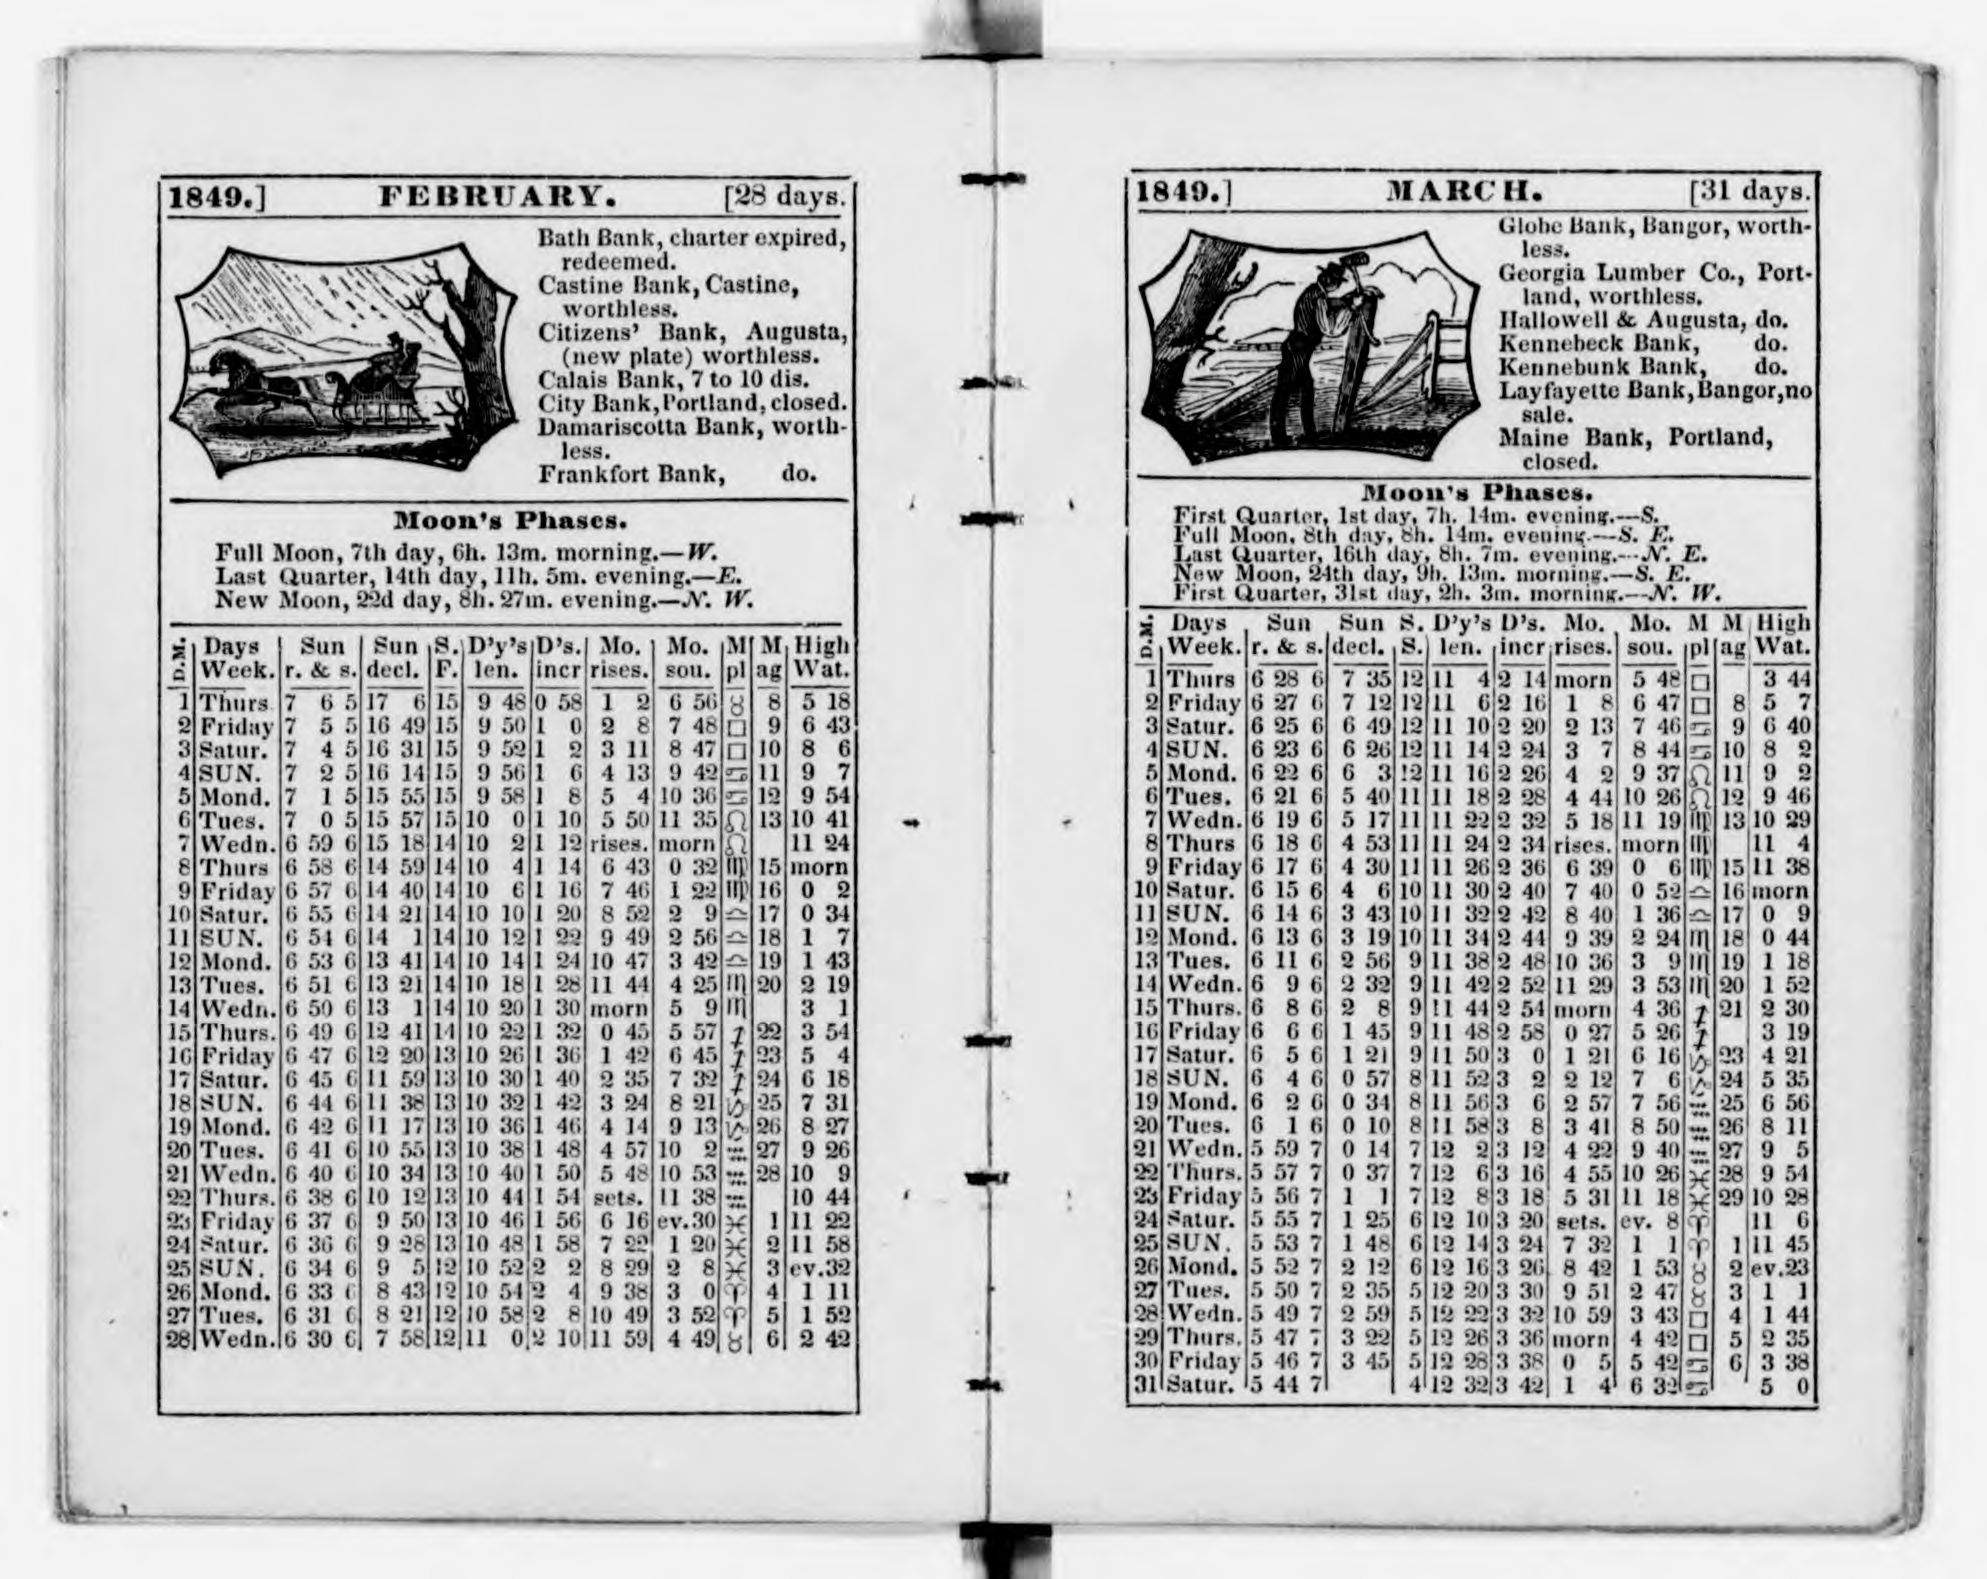 1849.] FEBRUARY. [28 days.
Bath Bank, charter expired,
redeemed.
Castine Bank, Castine,
worthless.
Citizens' Bank, Augusta,
(new plate) worthless.
Calais Bank, 7 to 10 dis.
City Bank, Portland, closed.
Damariscotta Bank, worth-
less.
Frankfort Bank, do.
Moon's Phases.
Full Moon, 7th day, 6h. 13m. morning.—W.
Last Quarter, 14th day, 11h. 5m. evening.—E.
New Moon, 22d day, 8h. 27m. evening.—N. W.
D.M. Days Sun Sun S. D'y's D's. Mo. Mo. M M High
Week. r. & s. decl. F. len. incr rises. sou. pl ag Wat.
1 Thurs 7 6 5 17 6 15 9 48 0 58 1 2 6 56 ♉ 8 5 18
2 Friday 7 5 5 16 49 15 9 50 1 0 2 8 7 48 □ 9 6 43
3 Satur. 7 4 5 16 31 15 9 52 1 2 3 11 8 47 □ 10 8 6
4 SUN. 7 2 5 16 14 15 9 56 1 6 4 13 9 42 ♋ 11 9 7
5 Mond. 7 1 5 15 55 15 9 58 1 8 5 4 10 36 ♋ 12 9 54
6 Tues. 7 0 5 15 57 15 10 0 1 10 5 50 11 35 ♌ 13 10 41
7 Wedn. 6 59 6 15 18 14 10 2 1 12 rises. morn ♌ 11 24
8 Thurs 6 58 6 14 59 14 10 4 1 14 6 43 0 32 ♍ 15 morn
9 Friday 6 57 6 14 40 14 10 6 1 16 7 46 1 22 ♍ 16 0 2
10 Satur. 6 55 6 14 21 14 10 10 1 20 8 52 2 9 ♎ 17 0 34
11 SUN. 6 54 6 14 1 14 10 12 1 22 9 49 2 56 ♎ 18 1 7
12 Mond. 6 53 6 13 41 14 10 14 1 24 10 47 3 42 ♎ 19 1 43
13 Tues. 6 51 6 13 21 14 10 18 1 28 11 44 4 25 ♏ 20 2 19
14 Wedn. 6 50 6 13 1 14 10 20 1 30 morn 5 9 ♏ 3 1
15 Thurs. 6 49 6 12 41 14 10 22 1 32 0 45 5 57 ♐ 22 3 54
16 Friday 6 47 6 12 20 13 10 26 1 36 1 42 6 45 ♐ 23 5 4
17 Satur. 6 45 6 11 59 13 10 30 1 40 2 35 7 32 ♐ 24 6 18
18 SUN. 6 44 6 11 38 13 10 32 1 42 3 24 8 21 ♑ 25 7 31
19 Mond. 6 42 6 11 17 13 10 36 1 46 4 14 9 13 ♑ 26 8 27
20 Tues. 6 41 6 10 55 13 10 38 1 48 4 57 10 2 ♒ 27 9 26
21 Wedn. 6 40 6 10 34 13 10 40 1 50 5 48 10 53 ♒ 28 10 9
22 Thurs. 6 38 6 10 12 13 10 44 1 54 sets. 11 38 ♒ 10 44
23 Friday 6 37 6 9 50 13 10 46 1 56 6 16 ev.30 ♓ 1 11 22
24 Satur. 6 36 6 9 28 13 10 48 1 58 7 22 1 20 ♓ 2 11 58
25 SUN. 6 34 6 9 5 12 10 52 2 2 8 29 2 8 ♓ 3 ev.32
26 Mond. 6 33 6 8 43 12 10 54 2 4 9 38 3 0 ♈ 4 1 11
27 Tues. 6 31 6 8 21 12 10 58 2 8 10 49 3 52 ♈ 5 1 52
28 Wedn. 6 30 6 7 58 12 11 0 2 10 11 59 4 49 ♉ 6 2 42
1849.] MARCH. [31 days.
Globe Bank, Bangor, worth-
less.
Georgia Lumber Co., Port-
land, worthless.
Hallowell & Augusta, do.
Kennebeck Bank, do.
Kennebunk Bank, do.
Layfayette Bank, Bangor, no
sale.
Maine Bank, Portland,
closed.
Moon's Phases.
First Quarter, 1st day, 7h. 14m. evening.—S.
Full Moon, 8th day, 8h. 14m. evening.—S. E.
Last Quarter, 16th day, 8h. 7m. evening.—N. E.
New Moon, 24th day, 9h. 13m. morning.—S. E.
First Quarter, 31st day, 2h. 3m. morning.—N. W.
D.M. Days Sun Sun S. D'y's D's. Mo. Mo. M M High
Week. r. & s. decl. S. len. incr rises. sou. pl ag Wat.
1 Thurs 6 28 6 7 35 12 11 4 2 14 morn 5 48 □ 3 44
2 Friday 6 27 6 7 12 12 11 6 2 16 1 8 6 47 □ 8 5 7
3 Satur. 6 25 6 6 49 12 11 10 2 20 2 13 7 46 ♋ 9 6 40
4 SUN. 6 23 6 6 26 12 11 14 2 24 3 7 8 44 ♋ 10 8 2
5 Mond. 6 22 6 6 3 12 11 16 2 26 4 2 9 37 ♌ 11 9 2
6 Tues. 6 21 6 5 40 11 11 18 2 28 4 44 10 26 ♌ 12 9 46
7 Wedn. 6 19 6 5 17 11 11 22 2 32 5 18 11 19 ♍ 13 10 29
8 Thurs 6 18 6 4 53 11 11 24 2 34 rises. morn ♍ 11 4
9 Friday 6 17 6 4 30 11 11 26 2 36 6 39 0 6 ♍ 15 11 38
10 Satur. 6 15 6 4 6 10 11 30 2 40 7 40 0 52 ♎ 16 morn
11 SUN. 6 14 6 3 43 10 11 32 2 42 8 40 1 36 ♎ 17 0 9
12 Mond. 6 13 6 3 19 10 11 34 2 44 9 39 2 24 ♏ 18 0 44
13 Tues. 6 11 6 2 56 9 11 38 2 48 10 36 3 9 ♏ 19 1 18
14 Wedn. 6 9 6 2 32 9 11 42 2 52 11 29 3 53 ♏ 20 1 52
15 Thurs. 6 8 6 2 8 9 11 44 2 54 morn 4 36 ♐ 21 2 30
16 Friday 6 6 6 1 45 9 11 48 2 58 0 27 5 26 ♐ 3 19
17 Satur. 6 5 6 1 21 9 11 50 3 0 1 21 6 16 ♑ 23 4 21
18 SUN. 6 4 6 0 57 8 11 52 3 2 2 12 7 6 ♑ 24 5 35
19 Mond. 6 2 6 0 34 8 11 56 3 6 2 57 7 56 ♒ 25 6 56
20 Tues. 6 1 6 0 10 8 11 58 3 8 3 41 8 50 ♒ 26 8 11
21 Wedn. 5 59 7 0 14 7 12 2 3 12 4 22 9 40 ♒ 27 9 5
22 Thurs. 5 57 7 0 37 7 12 6 3 16 4 55 10 26 ♓ 28 9 54
23 Friday 5 56 7 1 1 7 12 8 3 18 5 31 11 18 ♓ 29 10 28
24 Satur. 5 55 7 1 25 6 12 10 3 20 sets. ev. 8 ♈ 11 6
25 SUN. 5 53 7 1 48 6 12 14 3 24 7 32 1 1 ♈ 1 11 45
26 Mond. 5 52 7 2 12 6 12 16 3 26 8 42 1 53 ♉ 2 ev.23
27 Tues. 5 50 7 2 35 5 12 20 3 30 9 51 2 47 ♉ 3 1 1
28 Wedn. 5 49 7 2 59 5 12 22 3 32 10 59 3 43 □ 4 1 44
29 Thurs. 5 47 7 3 22 5 12 26 3 36 morn 4 42 □ 5 2 35
30 Friday 5 46 7 3 45 5 12 28 3 38 0 5 5 42 ♋ 6 3 38
31 Satur. 5 44 7 4 12 32 3 42 1 4 6 32 ♋ 5 0